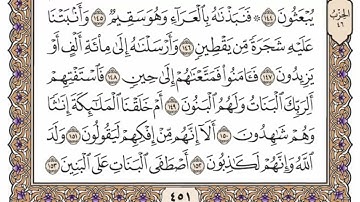 يُبْعَثُونَ ١٤٤ ۞ فَنَبَذْنَٰهُ بِٱلْعَرَآءِ وَهُوَ سَقِيمٌ ١٤٥ وَأَنۢبَتْنَا
عَلَيْهِ شَجَرَةً مِّن يَقْطِينٍ ١٤٦ وَأَرْسَلْنَٰهُ إِلَىٰ مِا۟ئَةِ أَلْفٍ أَوْ
يَزِيدُونَ ١٤٧ فَـَٔامَنُوا۟ فَمَتَّعْنَٰهُمْ إِلَىٰ حِينٍ ١٤٨ فَٱسْتَفْتِهِمْ
أَلِرَبِّكَ ٱلْبَنَاتُ وَلَهُمُ ٱلْبَنُونَ ١٤٩ أَمْ خَلَقْنَا ٱلْمَلَٰٓئِكَةَ إِنَٰثًا
وَهُمْ شَٰهِدُونَ ١٥٠ أَلَآ إِنَّهُم مِّنْ إِفْكِهِمْ لَيَقُولُونَ ١٥١ وَلَدَ
ٱللَّهُ وَإِنَّهُمْ لَكَٰذِبُونَ ١٥٢ أَصْطَفَى ٱلْبَنَاتِ عَلَى ٱلْبَنِينَ ١٥٣
٤٥١
الحزب
٤٦